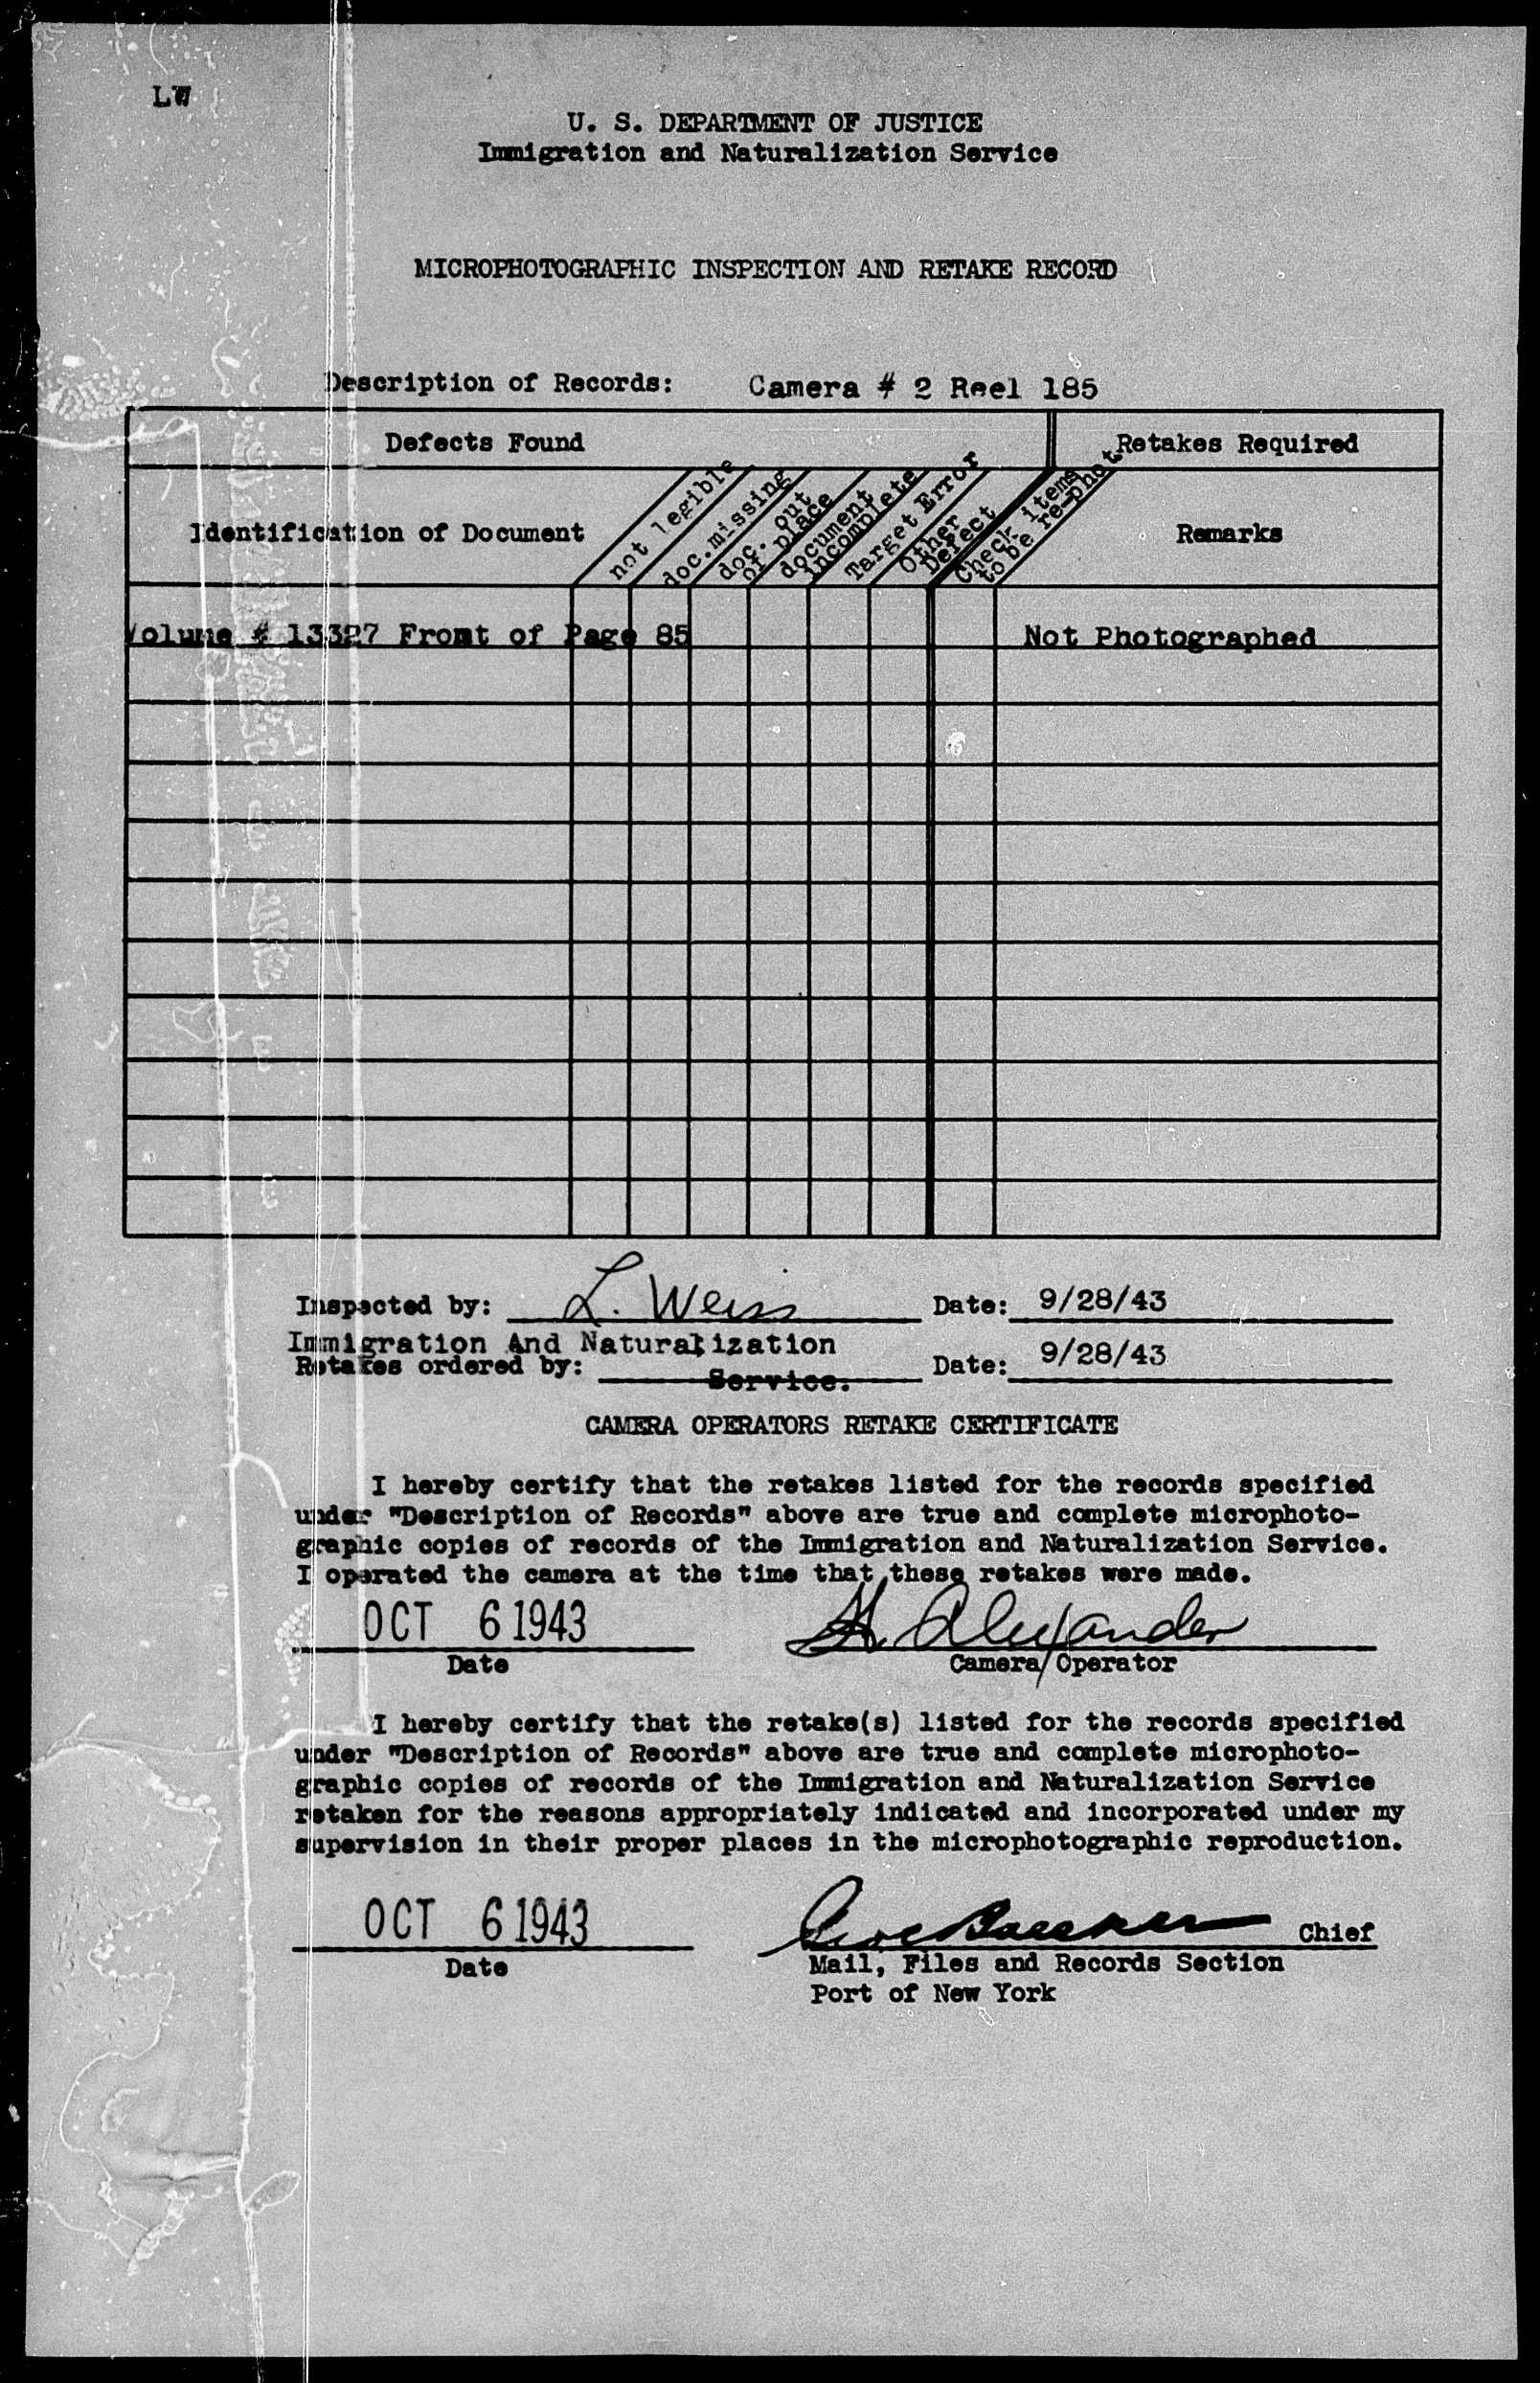 LW
U. S. DEPARTMENT OF JUSTICE
Immigration and Naturalization Service
MICROPHOTOGRAPHIC INSPECTION AND RETAKE RECORD
Description of Records: Camera # 2 Reel 185
Defects Found
Retakes Required
Identification of Document
not legible
doc. missing
doc. out
of place
document
incomplete
Target Error
Other
Defect
Check items
to be re-phot
Remarks
Volume # 13327 Front of Page 85 Not Photographed
Inspected by: L. Weiss Date: 9/28/43
Immigration And Naturalization
Retakes ordered by: Service. Date: 9/28/43
CAMERA OPERATORS RETAKE CERTIFICATE
I hereby certify that the retakes listed for the records specified
under "Description of Records" above are true and complete microphoto-
graphic copies of records of the Immigration and Naturalization Service.
I operated the camera at the time that these retakes were made.
OCT 6 1943 H. Alexander
Date Camera Operator
I hereby certify that the retake(s) listed for the records specified
under "Description of Records" above are true and complete microphoto-
graphic copies of records of the Immigration and Naturalization Service
retaken for the reasons appropriately indicated and incorporated under my
supervision in their proper places in the microphotographic reproduction.
OCT 6 1943 Chief
Date Mail, Files and Records Section
Port of New York